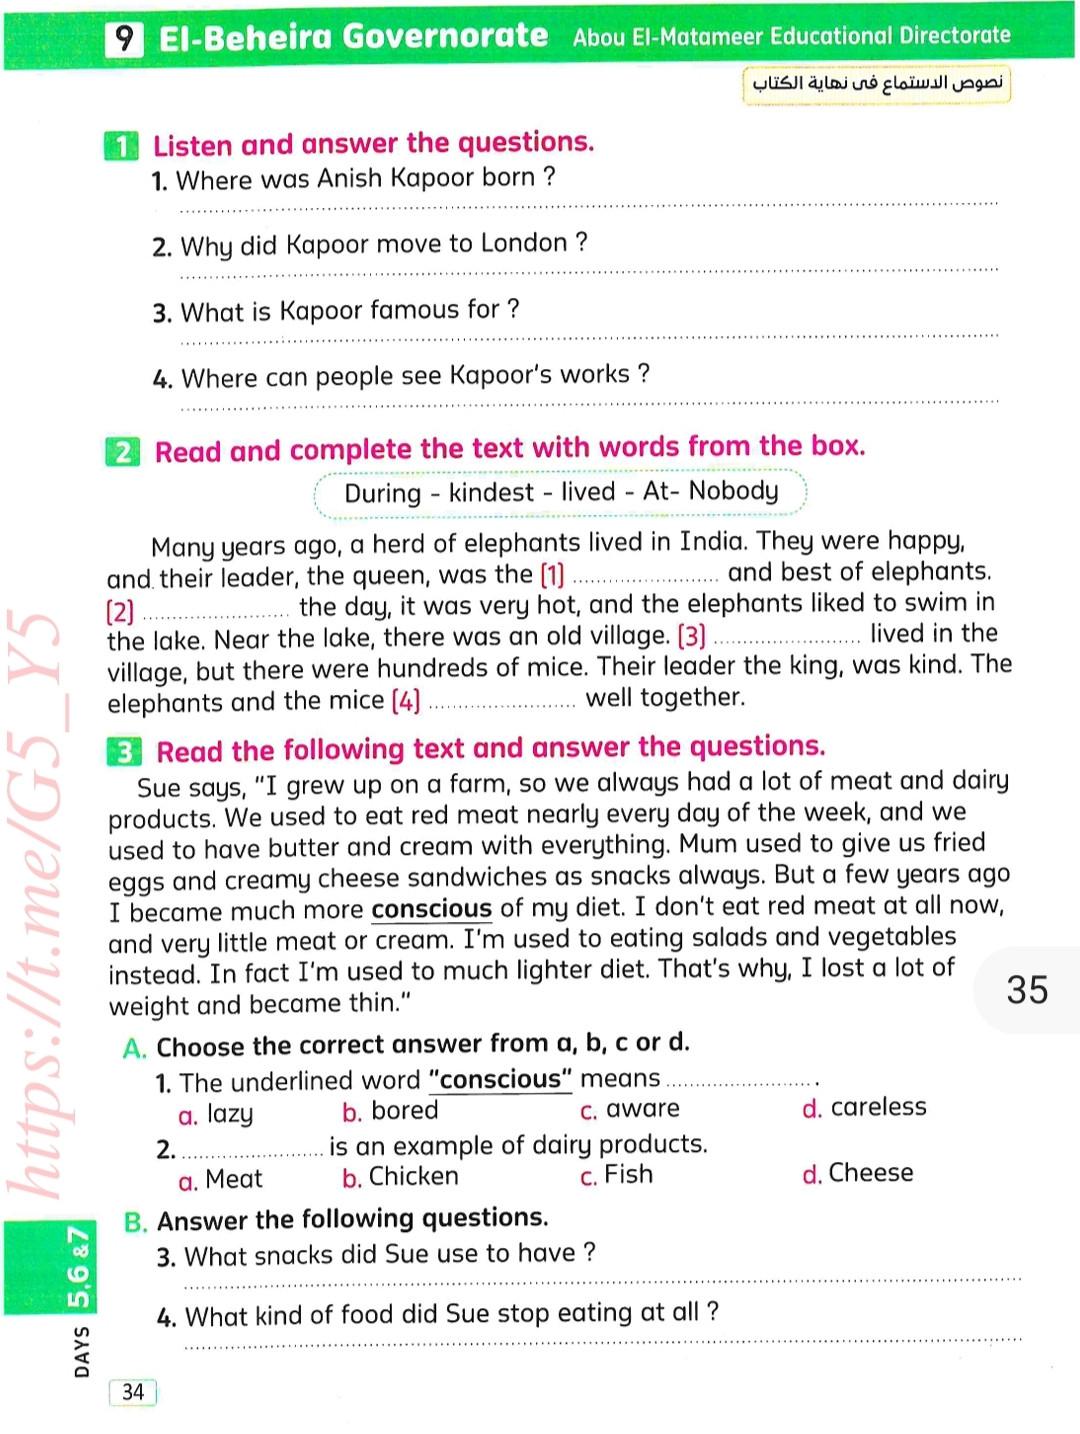 9 El-Beheira Governorate Abou El-Matameer Educational Directorate
نصوص الاستماع فى نهاية الكتاب
1 Listen and answer the questions.
1. Where was Anish Kapoor born ?
2. Why did Kapoor move to London ?
3. What is Kapoor famous for ?
4. Where can people see Kapoor's works ?
2 Read and complete the text with words from the box.
During - kindest - lived - At- Nobody
Many years ago, a herd of elephants lived in India. They were happy,
and their leader, the queen, was the (1) ........................ and best of elephants.
(2) ........................ the day, it was very hot, and the elephants liked to swim in
the lake. Near the lake, there was an old village. (3) ........................ lived in the
village, but there were hundreds of mice. Their leader the king, was kind. The
elephants and the mice (4) ........................ well together.
3 Read the following text and answer the questions.
Sue says, "I grew up on a farm, so we always had a lot of meat and dairy
products. We used to eat red meat nearly every day of the week, and we
used to have butter and cream with everything. Mum used to give us fried
eggs and creamy cheese sandwiches as snacks always. But a few years ago
I became much more conscious of my diet. I don't eat red meat at all now,
and very little meat or cream. I'm used to eating salads and vegetables
instead. In fact I'm used to much lighter diet. That's why, I lost a lot of
weight and became thin."
35
A. Choose the correct answer from a, b, c or d.
1. The underlined word "conscious" means ........................ .
a. lazy b. bored c. aware d. careless
2. ........................ is an example of dairy products.
a. Meat b. Chicken c. Fish d. Cheese
B. Answer the following questions.
3. What snacks did Sue use to have ?
4. What kind of food did Sue stop eating at all ?
DAYS 5,6 &7
34
https://t.me/G5_Y5